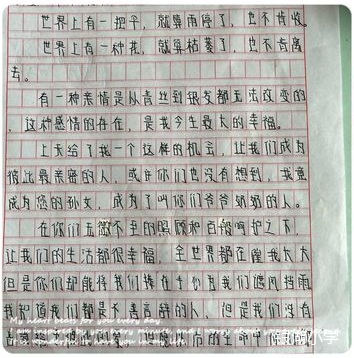 世界上有一把伞，就算雨停了，也不肯收
世界上有一种花，就算枯萎了，也不肯离
去。
有一种亲情是从青丝到银发都无法改变的
，这种感情的存在，是我今生最大的幸福。
上天给了我一个这样的机会，让我们成为
彼此最亲密的人，或许你们也没有想到，我竟
成为您的孙女，成为了叫你们爷爷奶奶的人。
在你们无微不至的照顾和百般呵护之下，
让我们的生活都很幸福，全世界都在
但是你们却能将我们捧在手们为我们遮风挡雨
我知道我们都是不善言辞的人，但是我们没有
My heart beats for you every day.
I am inspired by you every minute, and I worry about you every
It is wonderful to have you in my life.
的生命中
小学